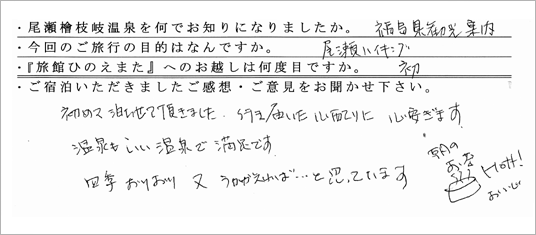 ・尾瀬檜枝岐温泉を何でお知りになりましたか。 福島県観光案内
・今回のご旅行の目的はなんですか。 尾瀬ハイキング
・『旅館ひのえまた』へのお越しは何度目ですか。 初
・ご宿泊いただきましたご感想・ご意見をお聞かせ下さい。
初めて泊らせて頂きました。行き届いた心配りに心安ぎます
温泉もいい温泉で満足です
四季おりおり 又 うかがえれば…と思っています
Hott!
おいしい